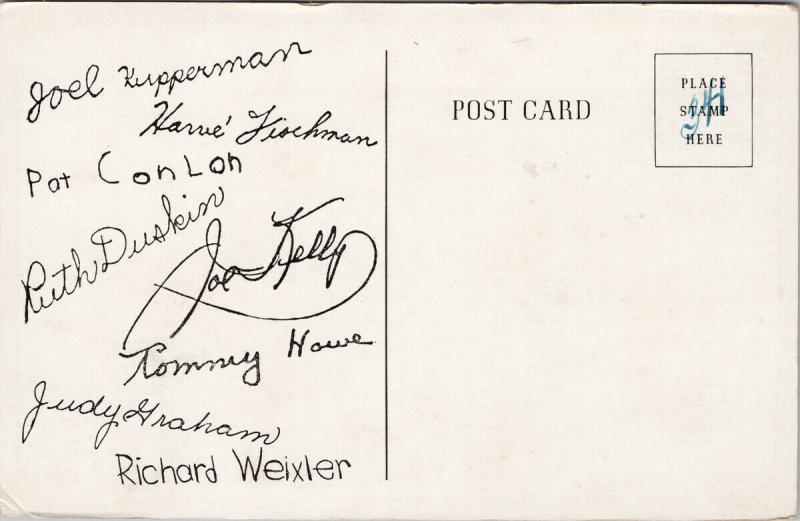 Joel Kupperman
Harvé Fischman
Pat ConLon
Ruth Duskin
Joe Kelly
Tommy Howe
Judy Graham
Richard Weixler
POST CARD
PLACE
STAMP
HERE